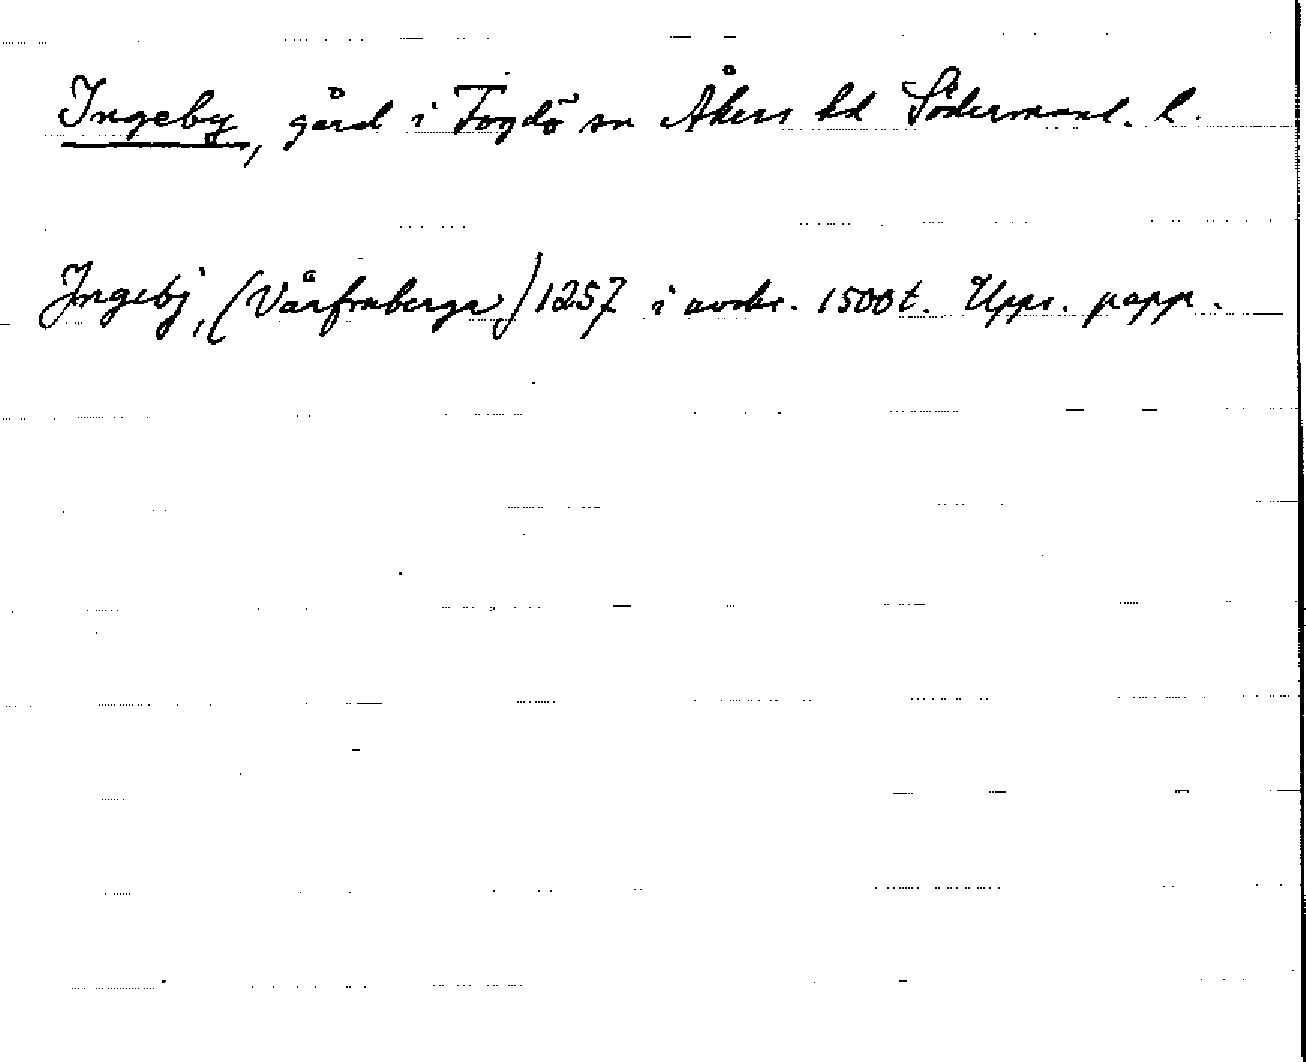 Ingeby, gård i Fogdö sn Åkers hd Södermanl. l.
Ingebj, (Vårfruberga) 1257 i avskr. 1500 t. Upps. papp.